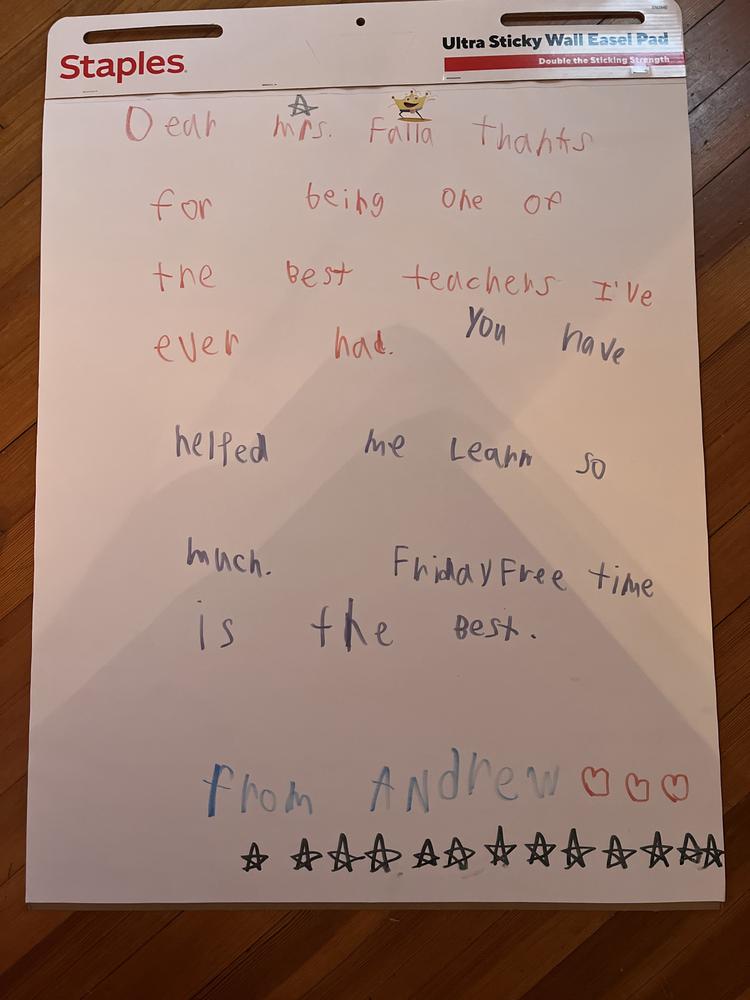 Staples
Ultra Sticky Wall Easel Pad
Double the Sticking Strength
Dear Mrs. Falla thanks
for being one of
the Best teachers I've
ever had. You have
helped me Learn so
much. Friday Free time
is the Best.
from Andrew